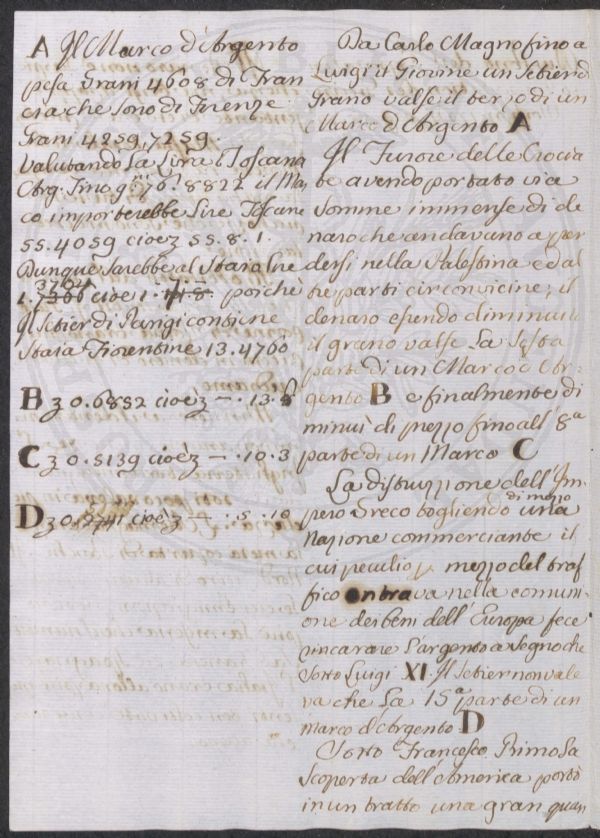 A Il Marco d'Argento
pesa Grani 4608 di Fran
cia che sono di Firenze
Grani 4259,7259.
Valutando la Lira Toscana
Arg. fino g.ni 76.8822 il Mar
co importerebbe Lire Toscane
55.4059 cioè z 55.8.1.
Dunque sarebbe al Staia Lire
3704
1.7366 cioè 1. poichè
Il Setier di Parigi contiene
Staia Fiorentine 13.4760
B z 0.6852 cioè z —.13.8
C z 0.5139 cioè z —.10.3
D z 0.2741 cioè z —.5.10
Da Carlo Magno fino a
Luigi il Giovine un Setier d
Grano valse il terzo di un
Marco d'Argento A
Il Furore delle Crocia
te avendo portato via
somme immense di de
naro che andavano a per
dersi nella Palestina ed al
tre parti circonvicine; il
denaro essendo diminuito
il grano valse la Sesta
parte di un Marco d'Ar
gento B e finalmente di
minuì di prezzo fino all' 8a
parte di un Marco C
La distruzzione dell'Im
pero Greco togliendo di mezzo una
Nazione commerciante il
cui peculio p mezzo del traf
fico entrava nella comuni
one dei beni dell'Europa fece
rincarare l'argento a segno che
sotto Luigi XI. Il Setier non vale
va che la 15a parte di un
marco d'Argento D
Sotto Francesco Primo la
scoperta dell'America portò
in un tratto una gran quan